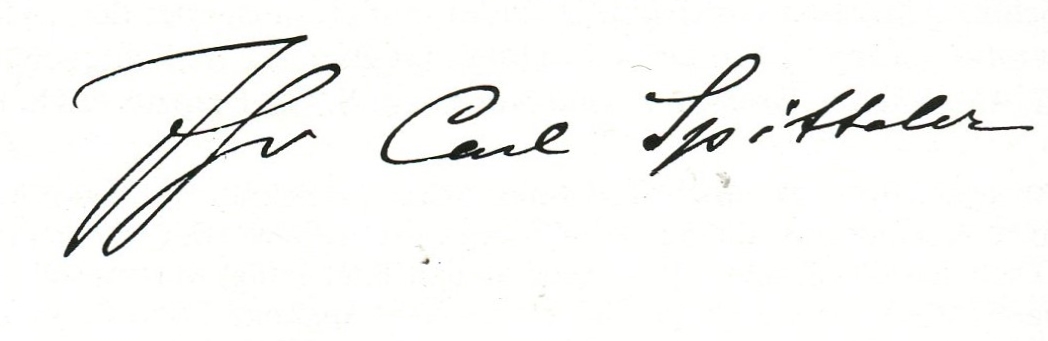 Ihr Carl Spitteler